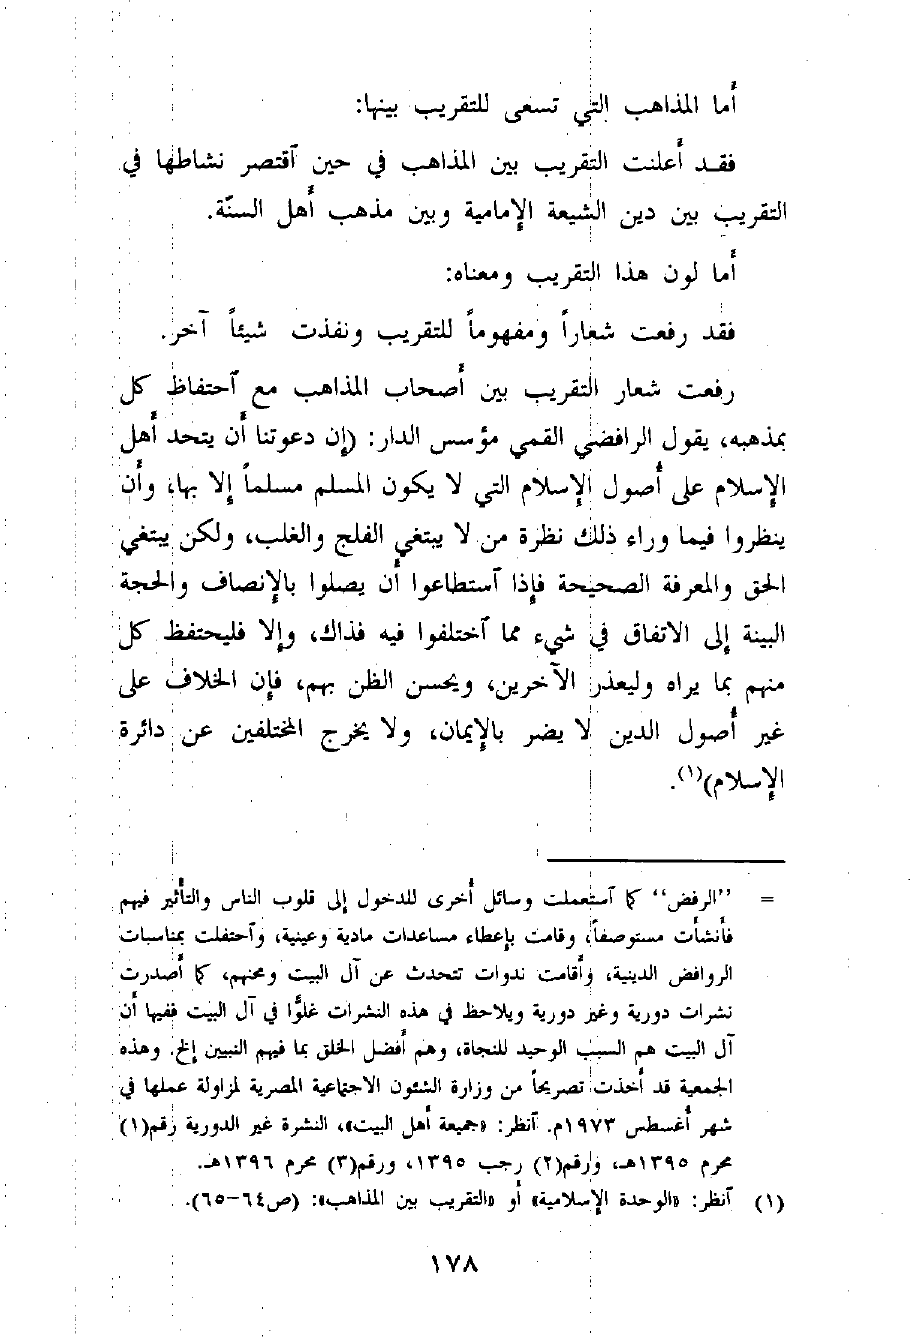 أما المذاهب التي تسعى للتقريب بينها:
فقـد أعلنت التقريب بين المذاهب في حين آقتصر نشاطها في
التقريب بين دين الشيعة الإمامية وبين مذهب أهل السنّة.
أما لون هذا التقريب ومعناه:
فقد رفعت شعاراً ومفهوماً للتقريب ونفذت شيئاً آخر.
رفعت شعار التقريب بين أصحاب المذاهب مع آحتفاظ كل
بمذهبه، يقول الرافضي القمي مؤسس الدار: (إن دعوتنا أن يتحد أهل
الإسلام على أصول الإسلام التي لا يكون المسلم مسلماً إلا بها، وأن
ينظروا فيما وراء ذلك نظرة من لا يبتغي الفلج والغلب، ولكن يبتغي
الحق والمعرفة الصحيحة فإذا آستطاعوا أن يصلوا بالإنصاف والحجة
البينة إلى الاتفاق في شيء مما آختلفوا فيه فذاك، وإلا فليحتفظ كل
منهم بما يراه وليعذر الآخرين، ويحسن الظن بهم، فإن الخلاف على
غير أصول الدين لا يضر بالإيمان، ولا يخرج المختلفين عن دائرة
الإسلام)(١).
= ”الرفض“ كما آستعملت وسائل أخرى للدخول إلى قلوب الناس والتأثير فيهم
فأنشأت مستوصفاً، وقامت بإعطاء مساعدات مادية وعينية، وآحتفلت بمناسبات
الروافض الدينية، وأقامت ندوات تتحدث عن آل البيت ومحنهم، كما أصدرت
نشرات دورية وغير دورية ويلاحظ في هذه النشرات غلوًّا في آل البيت ففيها أن
آل البيت هم السبب الوحيد للنجاة، وهم أفضل الخلق بما فيهم النبيين إلخ. وهذه
الجمعية قد أخذت تصريحاً من وزارة الشئون الاجتماعية المصرية لمزاولة عملها في
شهر أغسطس ١٩٧٣م. آنظر: «جميعة أهل البيت»، النشرة غير الدورية رقم(١)
محرم ١٣٩٥هـ، ورقم(٢) رجب ١٣٩٥، ورقم(٣) محرم ١٣٩٦هـ.
(١) آنظر: «الوحدة الإسلامية» أو «التقريب بين المذاهب»: (ص٦٤-٦٥).
١٧٨